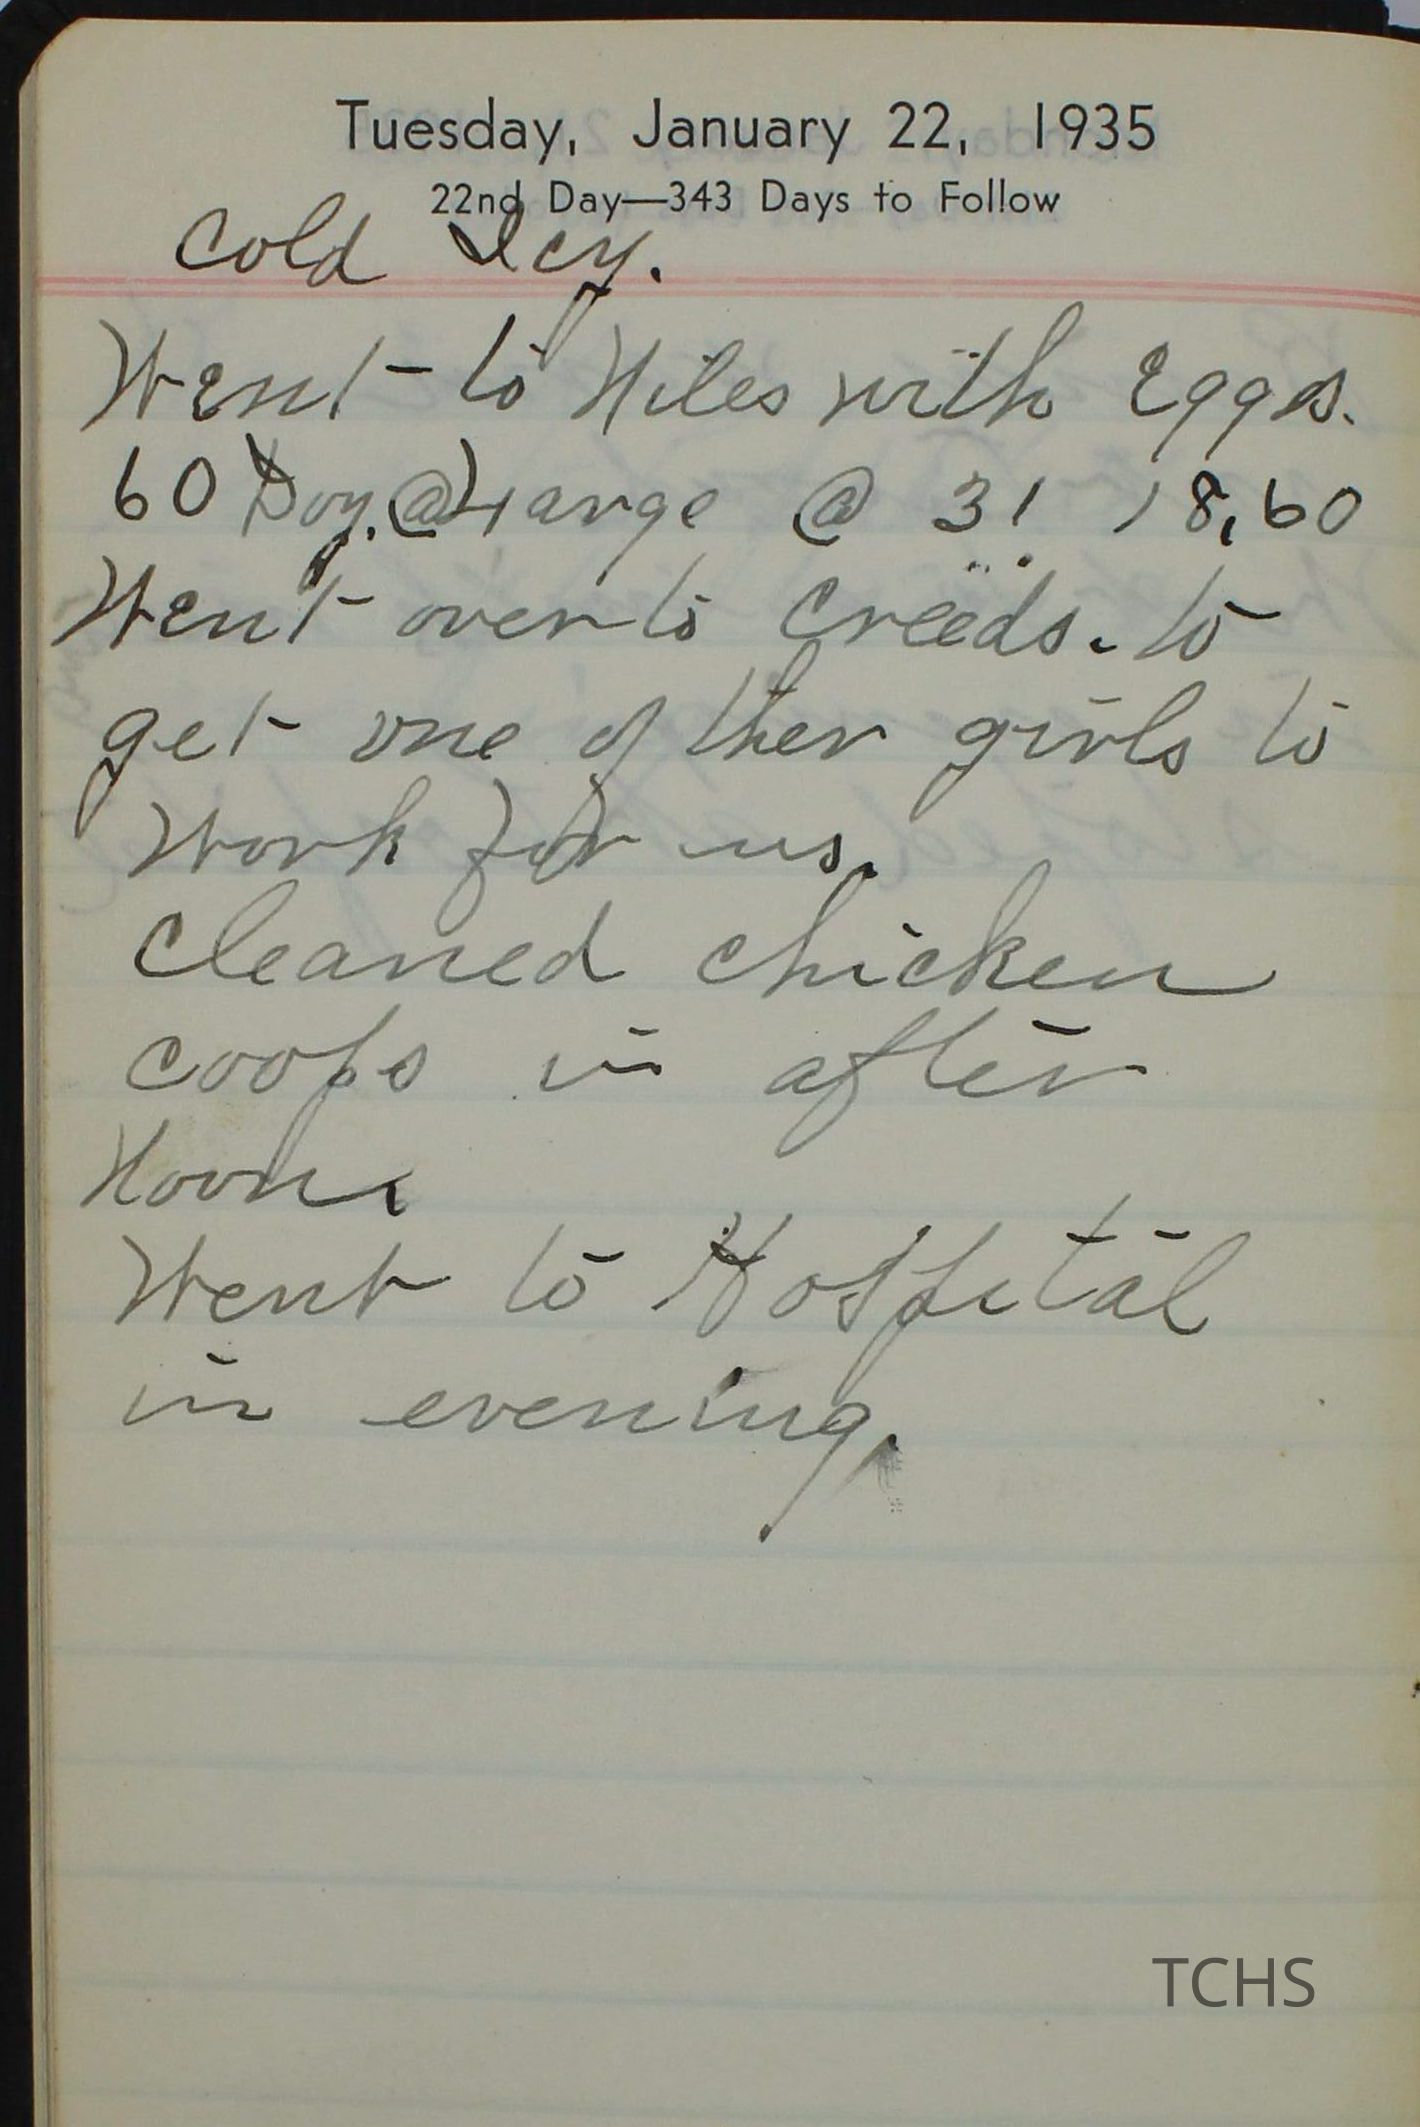 Tuesday, January 22, 1935
22nd Day—343 Days to Follow
Cold Icy.
Went to Niles with Eggs.
60 Doz. @ Large @ 31 18.60
Went over to Creeds. to
get one of ther girls to
Work for us.
Cleaned chicken
coops in after
Noon.
Went to Hospital
in evening.
TCHS